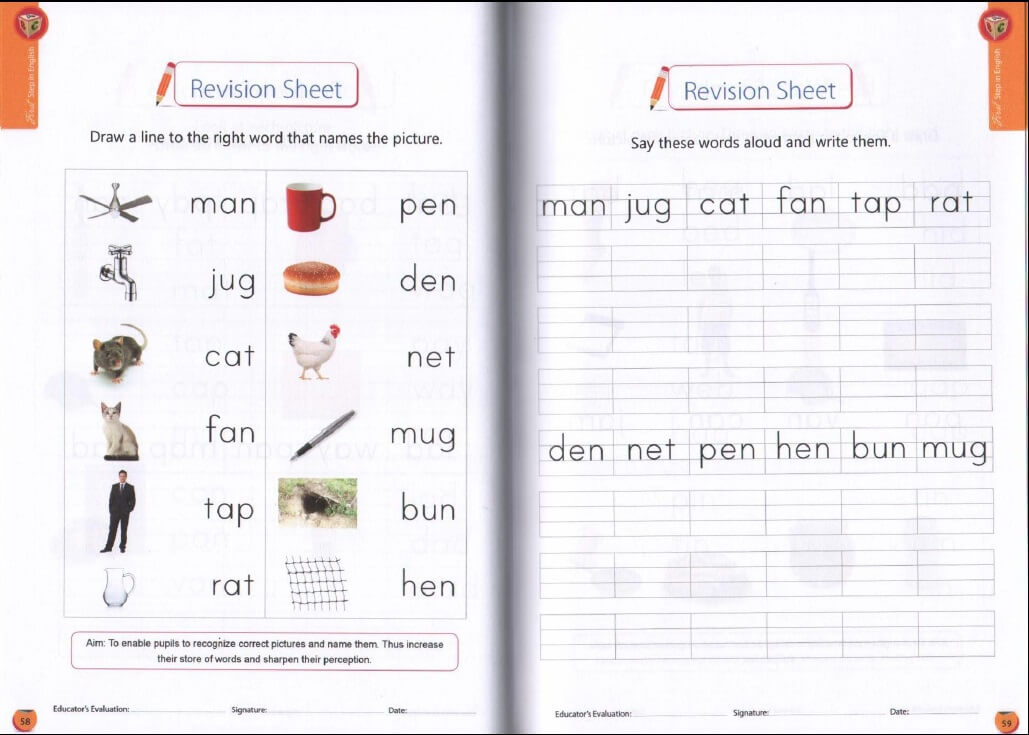 First Step in English
Revision Sheet
Draw a line to the right word that names the picture.
man pen
jug den
cat net
fan mug
tap bun
rat hen
Aim: To enable pupils to recognize correct pictures and name them. Thus increase
their store of words and sharpen their perception.
Educator's Evaluation: Signature: Date:
58
First Step in English
Revision Sheet
Say these words aloud and write them.
man jug cat fan tap rat
den net pen hen bun mug
Educator's Evaluation: Signature: Date:
59